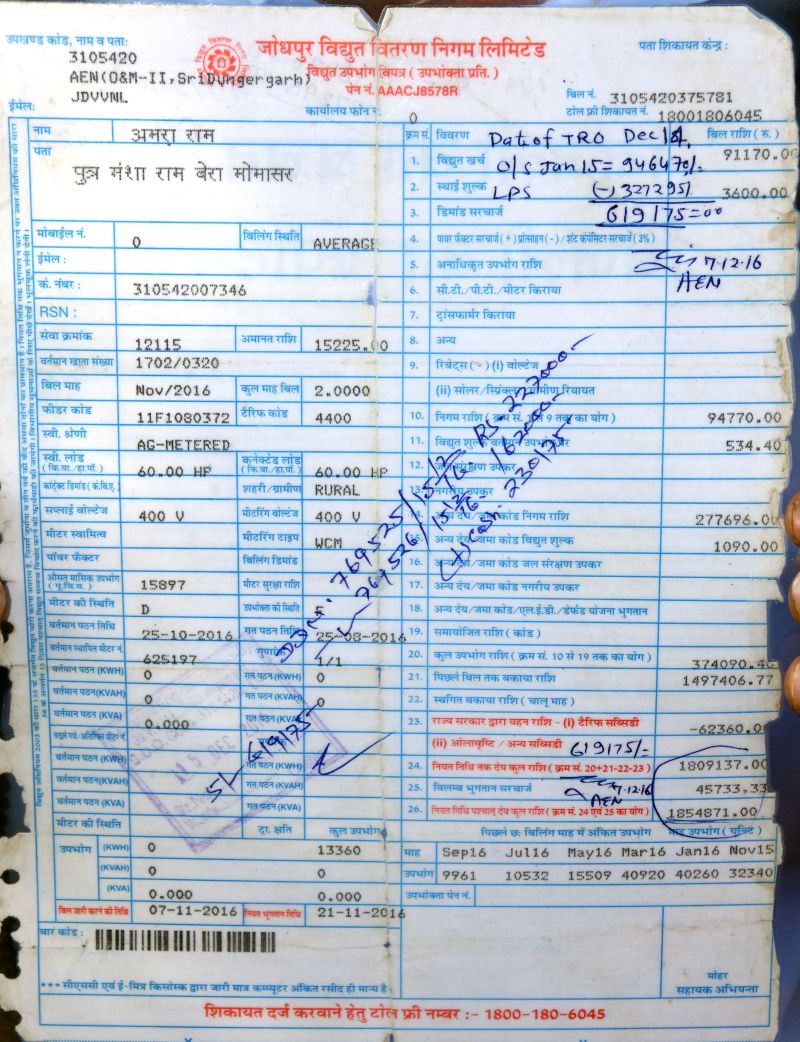 उपखण्ड कोड, नाम व पता:
3105420
AEN(O&M-II,SriDungergarh)
JDVVNL
जोधपुर विद्युत वितरण निगम लिमिटेड
विद्युत उपभोग विपत्र ( उपभोक्ता प्रति. )
पेन नं. AAACJ8578R
पता शिकायत केन्द्र :
बिल नं. 3105420375781
टोल फ्री शिकायत नं. 18001806045
ईमेल:
कार्यालय फोन नं 0
नाम अमरा राम
पता
पुत्र मंशा राम बेरा मोमासर
मोबाईल नं. 0 बिलिंग स्थिति AVERAGE
ईमेल :
के. नंबर : 310542007346
RSN :
सेवा क्रमांक 12115 अमानत राशि 15225.00
वर्तमान खाता संख्या 1702/0320
बिल माह Nov/2016 कुल माह बिल 2.0000
फीडर कोड 11F1080372 टैरिफ कोड 4400
स्वी. श्रेणी AG-METERED
स्वी. लोड (कि.वा./हा.पॉ.) 60.00 HP कनेक्टेड लोड (कि.वा./हा.पॉ.) 60.00 HP
कांट्रेक्ट डिमांड (के.वी.ए.) शहरी/ग्रामीण RURAL
सप्लाई वोल्टेज 400 V मीटरिंग वोल्टेज 400 V
मीटर स्वामित्व मीटरिंग टाइप WCM
पॉवर फैक्टर बिलिंग डिमांड
औसत मासिक उपभोग 15897 मीटर सुरक्षा राशि
मीटर की स्थिति D उपभोक्ता की स्थिति
वर्तमान पठन तिथि 25-10-2016 गत पठन तिथि 25-08-2016
वर्तमान स्थापित मीटर नं. 625197 गुणांक 1/1
वर्तमान पठन (KWH) 0 गत पठन (KWH) 0
वर्तमान पठन (KVAH) 0 गत पठन (KVAH) 0
वर्तमान पठन (KVA) 0.000 गत पठन (KVA)
वर्तमान पठन (KWH) गत पठन (KWH)
वर्तमान पठन(KVAH) गत पठन (KVAH)
वर्तमान पठन (KVA) गत पठन (KVA)
मीटर की स्थिति ट्रा. क्षति कुल उपभोग
उपभोग (KWH) 0 13360
(KVAH) 0 0
(KVA) 0.000 0.000
बिल जारी करने की तिथि 07-11-2016 नियत भुगतान तिथि 21-11-2016
बार कोड :
*** सीएससी एवं ई-मित्र किसोस्क द्वारा जारी मात्र कम्प्यूटर अंकित रसीद ही मान्य है
क्रम सं. विवरण बिल राशि ( रु. )
Dat. of TRO Dec 14.
1. विद्युत खर्च 91170.00
O/S Jan 15 = 946470/-
2. स्थाई शुल्क 3600.00
LPS (-) 327295/-
3. डिमांड सरचार्ज
619175=00
4. पावर फैक्टर सरचार्ज ( + ) प्रोत्साहन ( - ) / शंट केपेसिटर सरचार्ज (3%)
5. अनाधिकृत उपभोग राशि
7.12.16
AEN
6. सी.टी./पी.टी./मीटर किराया
7. ट्रांसफार्मर किराया
8. अन्य
9. रिबेट्स ( – ) (i) वोल्टेज
(ii) सोलर/स्प्रिंकलर/ग्रामीण रियायत
10. निगम राशि ( क्रम सं. 1 से 9 तक का योग ) 94770.00
11. 534.40
12. जल संरक्षण उपकर
13. नगरीय उपकर
14. अन्य देय/जमा कोड निगम राशि 277696.00
15. अन्य देय/जमा कोड विद्युत शुल्क 1090.00
16. अन्य देय/जमा कोड जल संरक्षण उपकर
17. अन्य देय/जमा कोड नगरीय उपकर
18. अन्य देय/जमा कोड/एल.ई.डी./डेफर्ड योजना भुगतान
19. समायोजित राशि ( कोड )
20. कुल उपभोग राशि ( क्रम सं. 10 से 19 तक का योग ) 374090.40
21. पिछले बिल तक बकाया राशि 1497406.77
22. स्थगित बकाया राशि ( चालू माह )
23. राज्य सरकार द्वारा वहन राशि - (i) टैरिफ सब्सिडी -62360.00
(ii) ओलावृष्टि / अन्य सब्सिडी
619175/-
24. नियत तिथि तक देय कुल राशि ( क्रम सं. 20+21-22-23 ) 1809137.00
25. विलम्ब भुगतान सरचार्ज 45733.33
7.12.16
AEN
26. नियत तिथि पश्चात् देय कुल राशि ( क्रम सं. 24 एवं 25 का योग ) 1854871.00
पिछले छः बिलिंग माह में अंकित उपभोग माह उपभोग ( यूनिट )
माह Sep16 Jul16 May16 Mar16 Jan16 Nov15
उपभोग 9961 10532 15509 40920 40260 32340
उपभोक्ता पेन नं.
769525/15/12 RS-227000-
769526/15/12 162000-
(+) Cash: 230175-
619175-
मोहर
सहायक अभियन्ता
शिकायत दर्ज करवाने हेतु टोल फ्री नम्बर :- 1800-180-6045